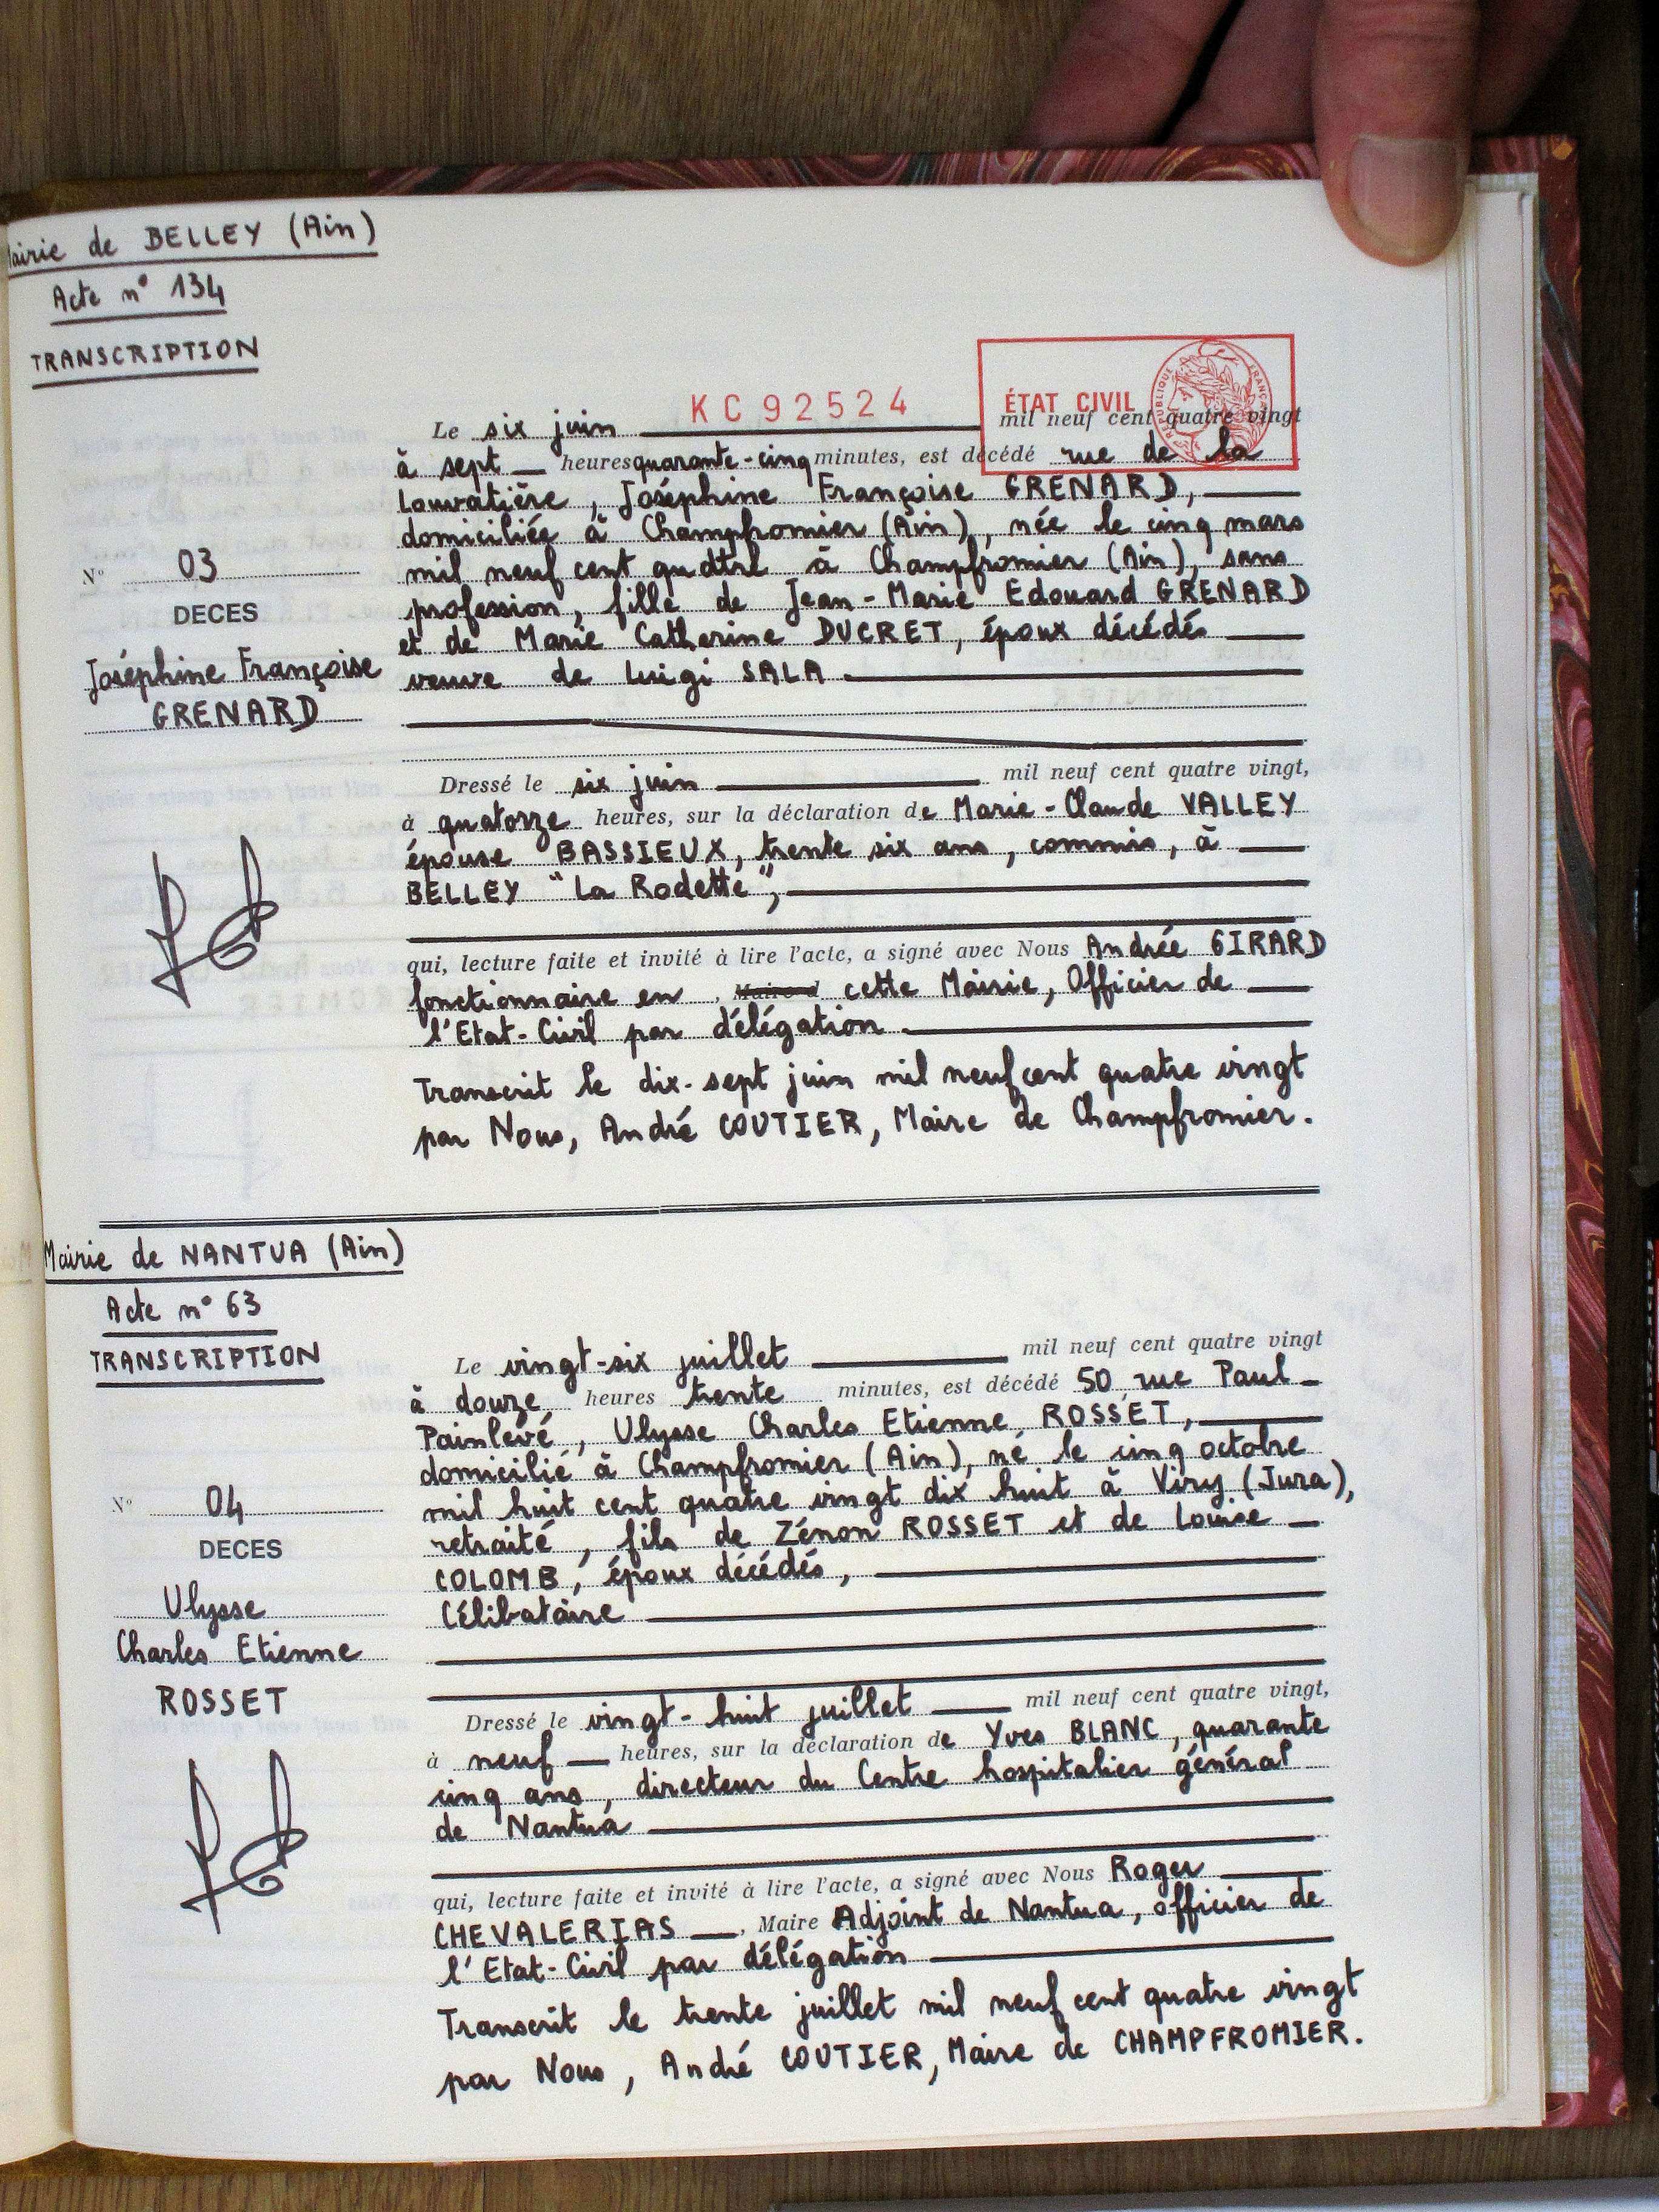 Mairie de BELLEY (Ain)
Acte n° 134
TRANSCRIPTION
KC92524
ÉTAT CIVIL
RÉPUBLIQUE FRANÇAISE
Le six juin mil neuf cent quatre vingt
à sept heures quarante-cinq minutes, est décédé rue de la
Louvatière, Joséphine Françoise GRENARD,
domiciliée à Champfromier (Ain), née le cinq mars
mil neuf cent quatre à Champfromier (Ain), sans
profession, fille de Jean-Marie Edouard GRENARD
et de Marie Catherine DUCRET, époux décédés
veuve de Luigi SALA
N° 03
DECES
Joséphine Françoise
GRENARD
Dressé le six juin mil neuf cent quatre vingt,
à quatorze heures, sur la déclaration de Marie-Claude VALLEY
épouse BASSIEUX, trente six ans, commis, à
BELLEY "La Rodette",
qui, lecture faite et invité à lire l'acte, a signé avec Nous Andrée GIRARD
fonctionnaire en , Maire d cette Mairie, Officier de
l'Etat-Civil par délégation
Transcrit le dix-sept juin mil neuf cent quatre vingt
par Nous, André COUTIER, Maire de Champfromier.
Mairie de NANTUA (Ain)
Acte n° 63
TRANSCRIPTION
Le vingt-six juillet mil neuf cent quatre vingt
à douze heures trente minutes, est décédé 50 rue Paul
Painlevé, Ulysse Charles Etienne ROSSET,
domicilié à Champfromier (Ain), né le cinq octobre
mil huit cent quatre vingt dix huit à Viry (Jura),
retraité, fils de Zénon ROSSET et de Louise
COLOMB, époux décédés,
Célibataire
N° 04
DECES
Ulysse
Charles Etienne
ROSSET
Dressé le vingt-huit juillet mil neuf cent quatre vingt,
à neuf heures, sur la déclaration de Yves BLANC, quarante
cinq ans, directeur du Centre hospitalier général
de Nantua
qui, lecture faite et invité à lire l'acte, a signé avec Nous Roger
CHEVALERIAS , Maire Adjoint de Nantua, officier de
l'Etat-Civil par délégation
Transcrit le trente juillet mil neuf cent quatre vingt
par Nous, André COUTIER, Maire de CHAMPFROMIER.